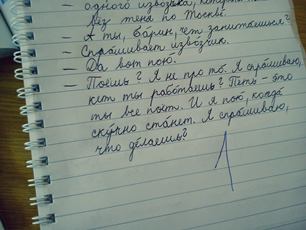 одного извозчика,
вез меня по Москве.
– А ты, барин, чем занимаешься? –
– Спрашивает извозчик.
– Да вот пою.
– Поёшь? Я не про то. Я спрашиваю,
кем ты работаешь? Петь – это
ты все поет. И я пою, когда
скучно станет. Я спрашиваю,
что делаешь?